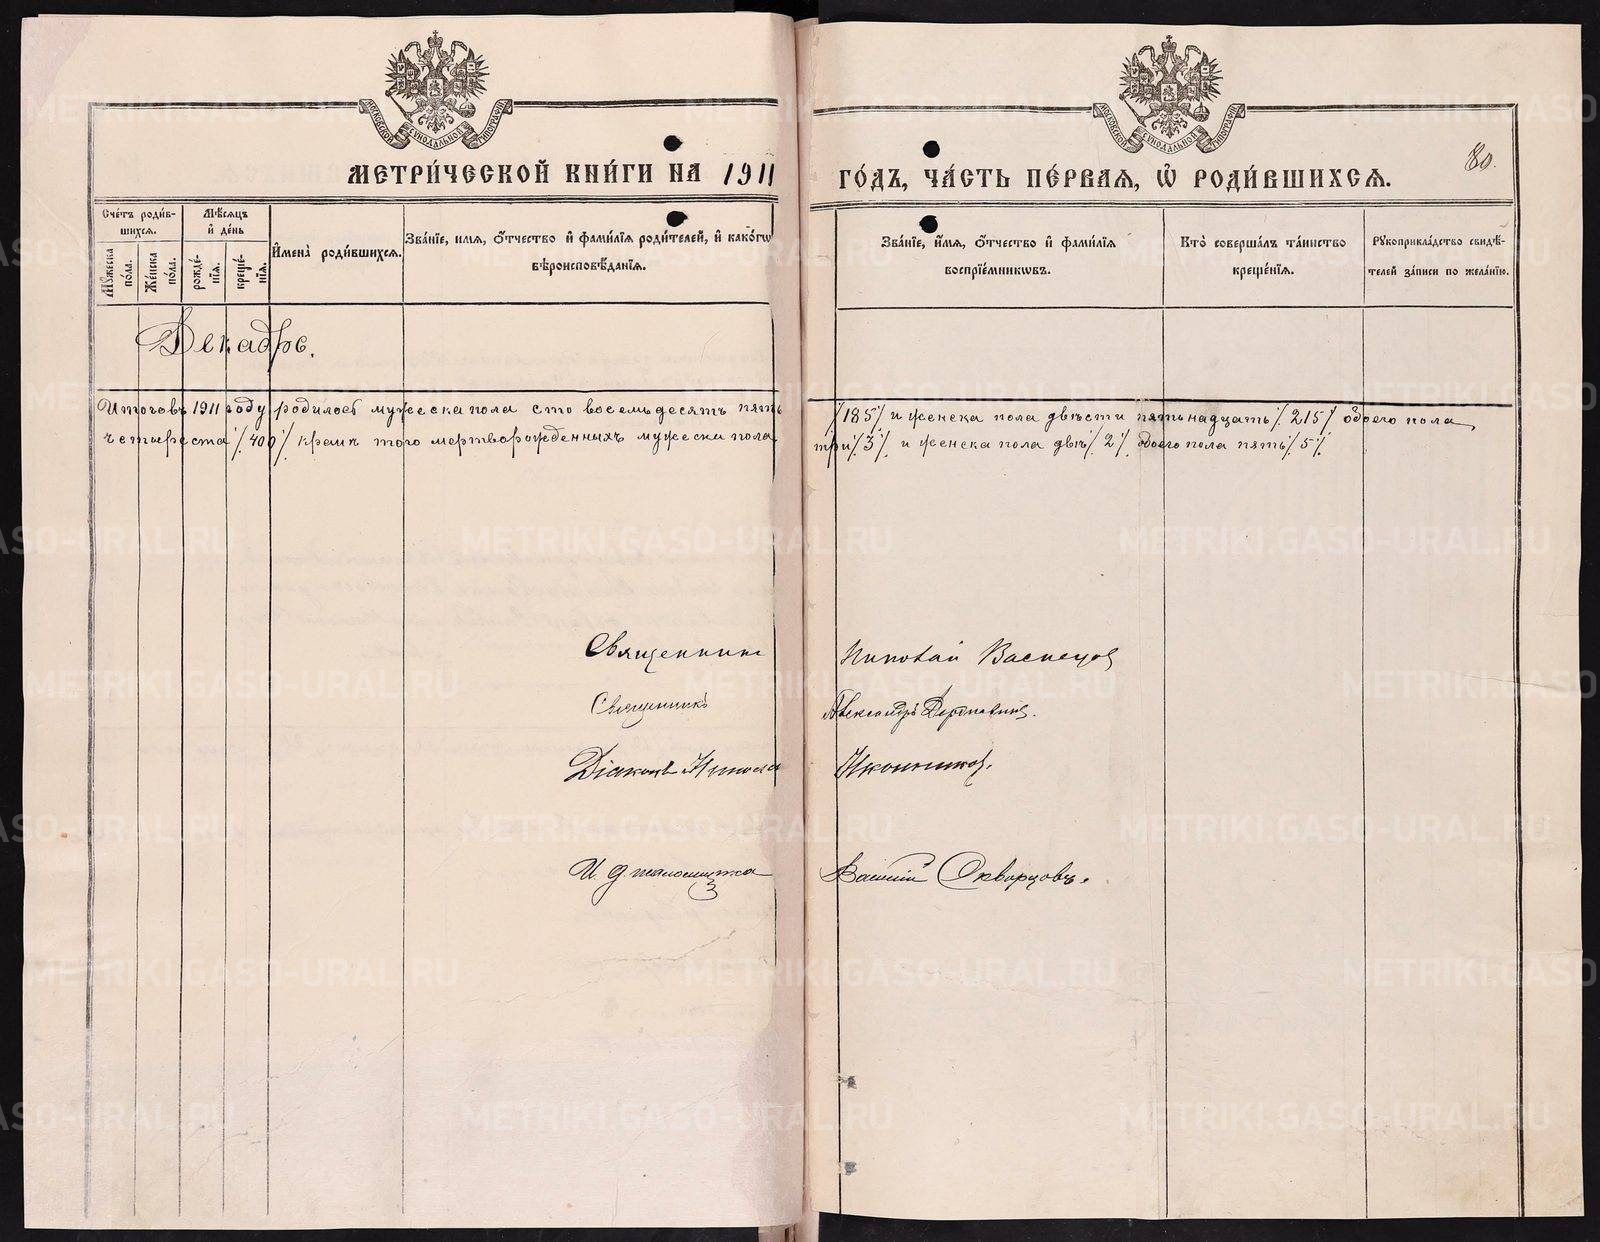 МОСКОВСКОЙ СѴНОДАЛЬНОЙ ТИПОГРАФІИ
МОСКОВСКОЙ СѴНОДАЛЬНОЙ ТИПОГРАФІИ
МЕТРИ́ЧЕСКОЙ КНИ́ГИ НА 1911 ГО́ДЪ, ЧА́СТЬ ПЕ́РВАЯ, Ѡ҆ РОДИ́ВШИХСЯ.
80.
Сче́тъ роди́в-
шихся.
Мѣ́сяцъ
и҆ де́нь
Мꙋ́жеска
по́ла.
Же́нска
по́ла.
рожде́-
нїя.
креще́-
нїя.
И҆мена̀ роди́вшихся.
Зва́нїе, и҆мя, о҆́тчество и҆ фами́лїя роди́телей, и҆ како́гѡ
вѣроисповѣ́данїя.
Зва́нїе, и҆́мя, о҆́тчество и҆ фами́лїя
воспрїе́мникѡвъ.
Кто̀ соверша́лъ та́инство
креще́нїя.
Рꙋкоприкла́дство свидѣ́-
телей за́писи по жела́нїю.
Декабрь.
Итого въ 1911 году родилось мужеска пола сто восемьдесятъ пять /185/ и женска пола двѣсти пятьнадцать /215/ обоего пола
четыреста /400/ кромѣ того мертворожденныхъ мужеска пола три /3/ и женска пола двѣ /2/ обоего пола пять /5/
Священникъ Николай Васнецов
Священникъ Александръ
Діаконъ Николай Иконников.
И. д. псаломщика Василій Скворцовъ.
METRIKI.GASO-URAL.RU